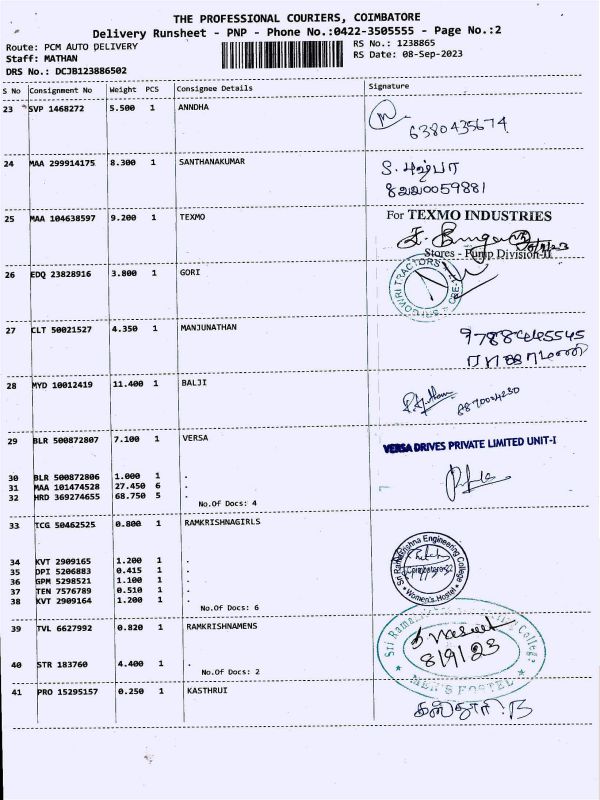 THE PROFESSIONAL COURIERS, COIMBATORE
Delivery Runsheet - PNP - Phone No.:0422-3505555 - Page No.:2
Route: PCM AUTO DELIVERY
RS No.: 1238865
Staff: MATHAN
RS Date: 08-Sep-2023
DRS No.: DCJB123886502
S No Consignment No Weight PCS Consignee Details Signature
23 SVP 1468272 5.500 1 ANNDHA
6380435674
24 MAA 299914175 8.300 1 SANTHANAKUMAR S. புஷ்பா
8220059881
25 MAA 104638597 9.200 1 TEXMO For TEXMO INDUSTRIES
Stores - Pump Division-II
26 EDQ 23828916 3.800 1 GORI
SRI GOWRI TRACTORS
27 CLT 50021527 4.350 1 MANJUNATHAN
28 MYD 10012419 11.400 1 BALJI
8870024230
29 BLR 500872807 7.100 1 VERSA VERSA DRIVES PRIVATE LIMITED UNIT-I
30 BLR 500872806 1.000 1 .
31 MAA 101474528 27.450 6 .
32 HRD 369274655 68.750 5 .
No.Of Docs: 4
33 TCG 50462525 0.800 1 RAMKRISHNAGIRLS
Sri Ramakrishna Engineering College
Coimbatore-22
Women's Hostel
34 KVT 2909165 1.200 1 .
35 DPI 5206883 0.415 1 .
36 GPM 5298521 1.100 1 .
37 TEN 7576789 0.510 1 .
38 KVT 2909164 1.200 1 .
No.Of Docs: 6
39 TVL 6627992 0.820 1 RAMKRISHNAMENS
8/9/23
MEN'S HOSTEL
40 STR 183760 4.400 1 .
No.Of Docs: 2
41 PRO 15295157 0.250 1 KASTHRUI
கஸ்தூரி. B